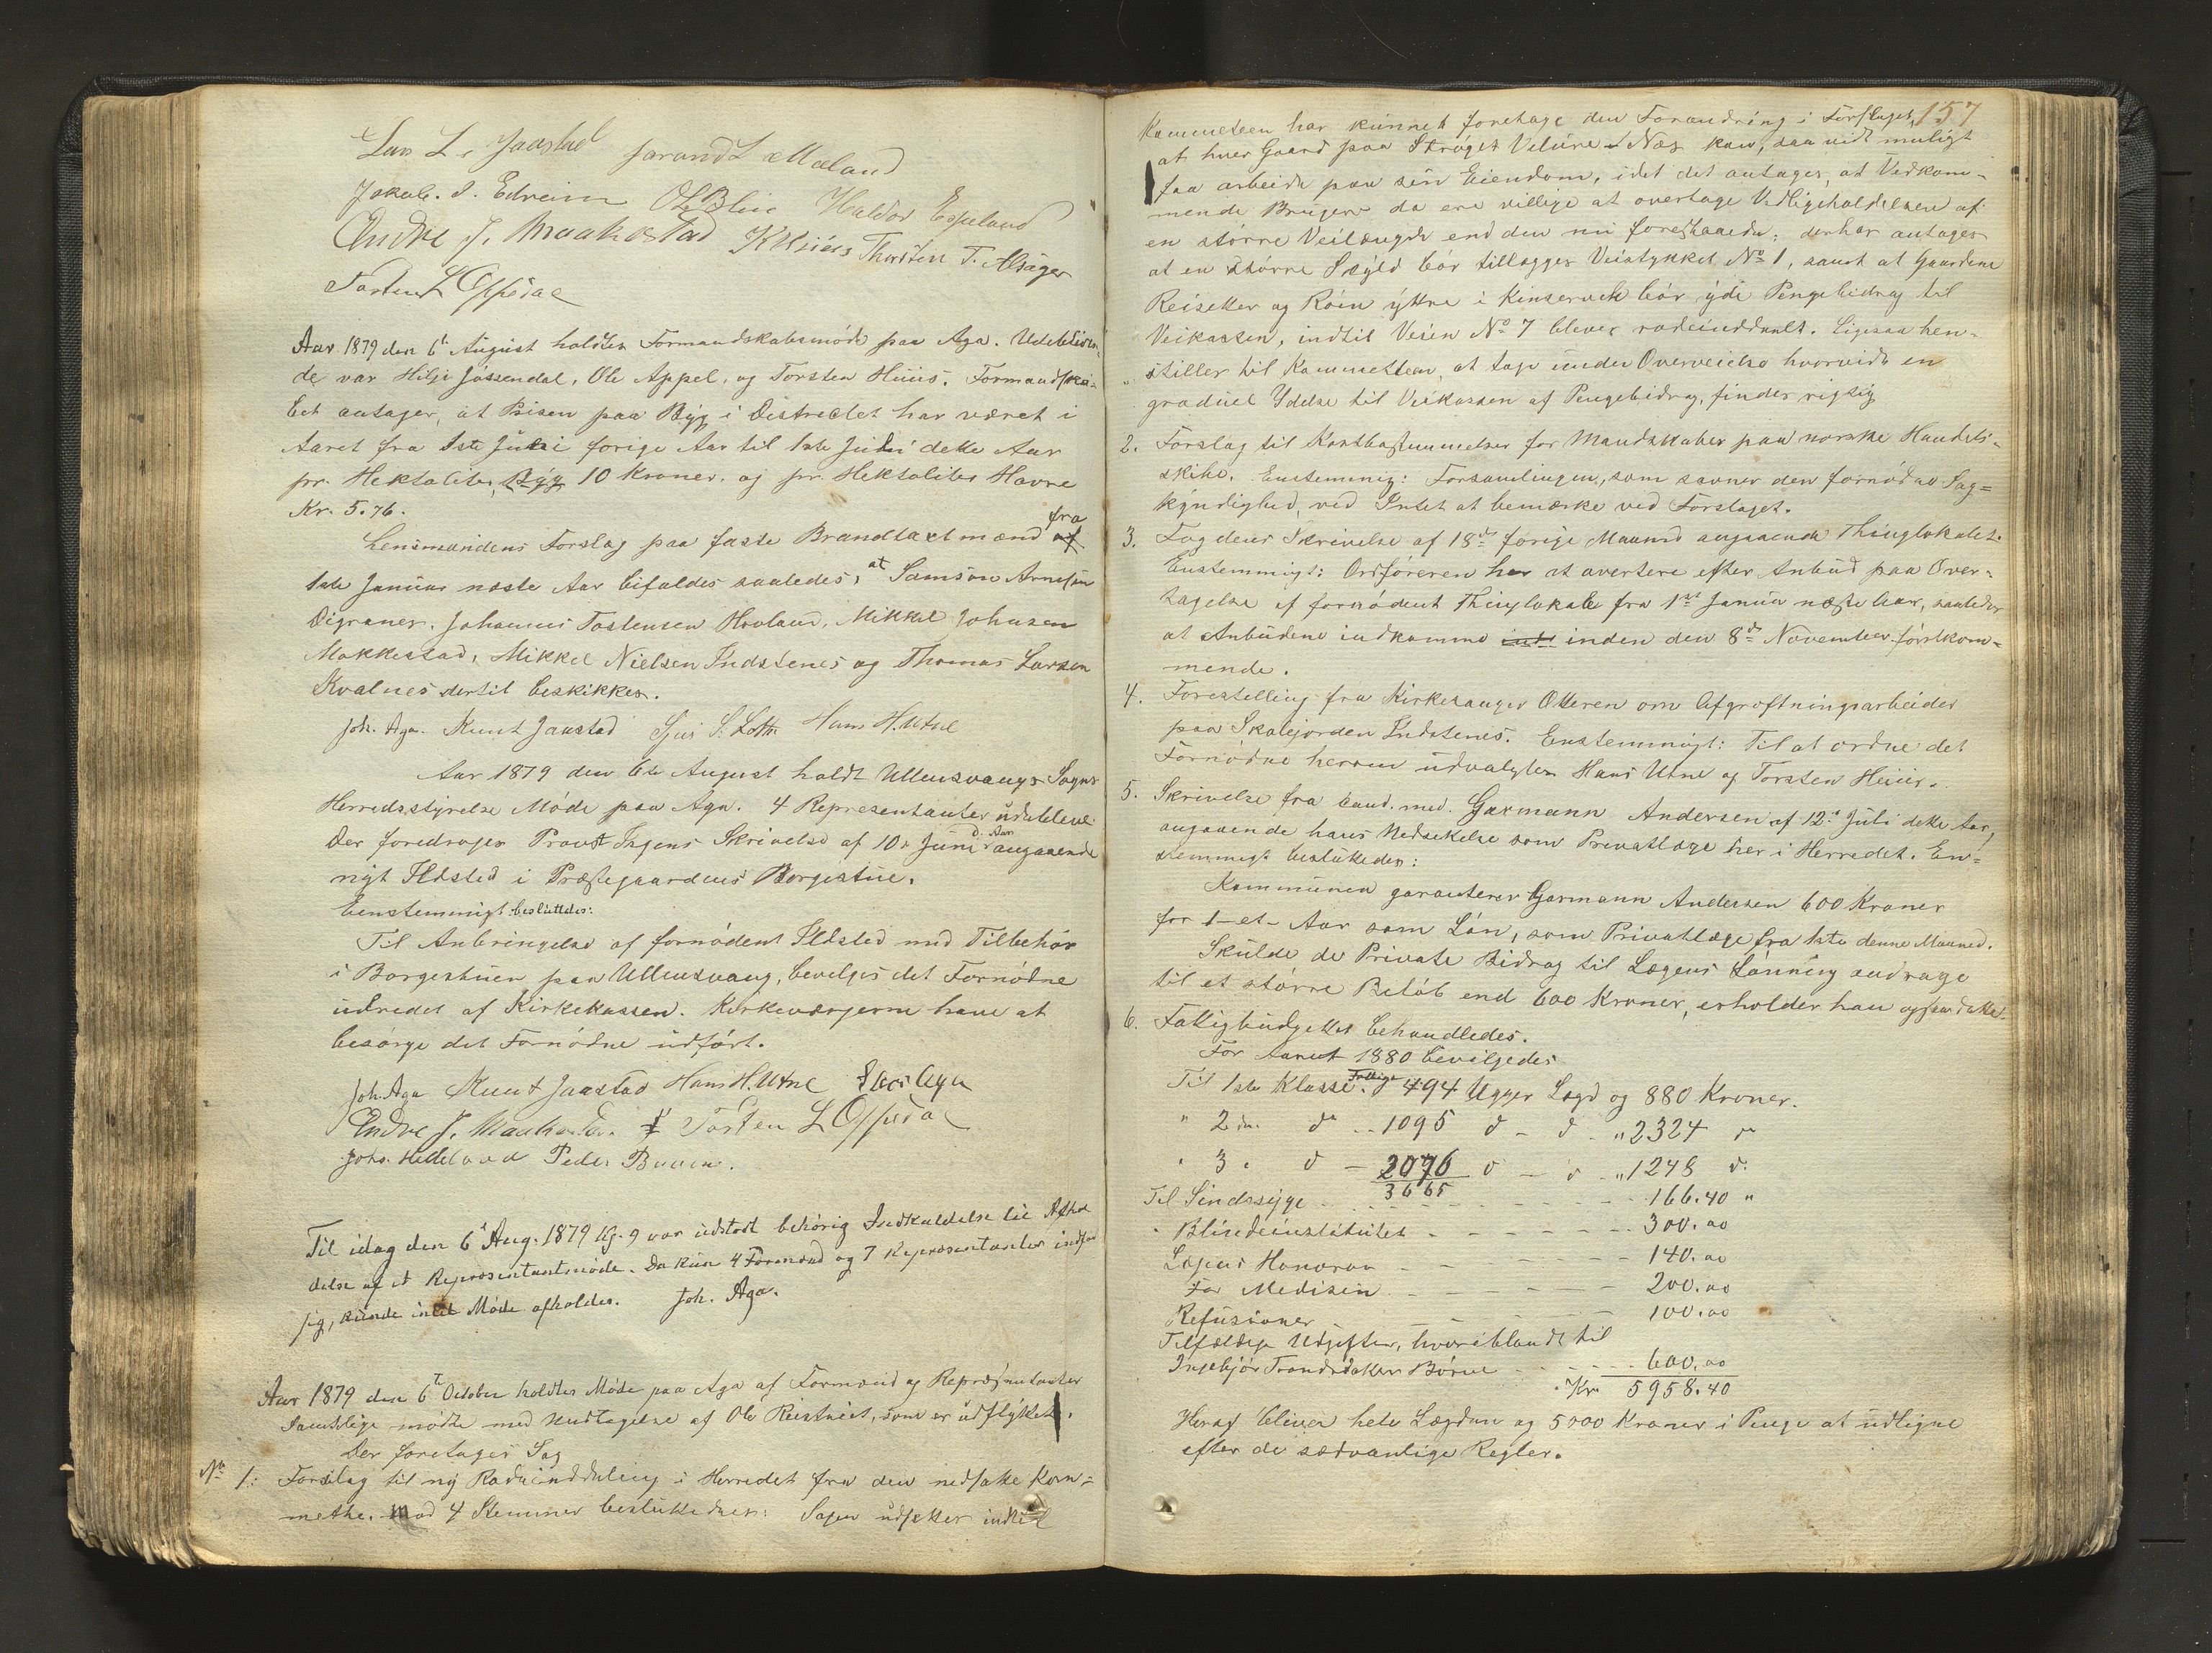 Lars L. Jaastad Jarand L. Mæland
Jakob. J. Edreim O.L. Blie Haldor Espeland
Endre J. Maakestad K Huus Thorsten T. Alsager
Torsten L Oppedal
Aar 1879 den 6te August holdtes Formandskabsmøde paa Aga. Udebliven-
de var Hilje Jøssendal, Ole Appel, og Torsten Huus. Formandska-
bet antager, at Prisen paa Byg i Districtet har været i
Aaret fra 1ste Juli forige Aar til 1ste Juli dette Aar
pr. Hektoliter Byg 10 Kroner, og pr. Hektoliter Havre
Kr. 5.76.
Lensmandens Forslag paa faste Brandtaxtmænd af fra
1ste Januar næste Aar bifaldes saaledes, at Samson Arnesen
Digranes, Johannes Tostensen Hovland, Mikkel Johnsen
Mokkestad, Mikkel Nielsen Indstenes og Thomas Larsen
Kvalnes dertil beskikkes.
Joh. Aga. Knut Jaastad Sjur S. Lothe Hans H. Utne
Aar 1879 den 6te August holdt Ullensvangs Sogns
Herredsstyrelse Møde paa Aga. 4 Representanter udebleve.
Der foredroges Provst Tagens Skrivelse af 10de Juni d. Aar angaaende
nyt Ildsted i Præstegaardens Borgestue.
Eenstemmigt besluttedes:
Til Anbringelse af fornødent Ildsted med Tilbehør
i Borgestuen paa Ullensvang, bevilges det Fornødne
udredet af Kirkekassen. Kirkeværgerne have at
besørge det Fornødne udført.
Joh. Aga Knut Jaastad Hans H. Utne Lars Aga
Endre J. Maakestad. Torsten L Oppedal
Johs. Helleland Peder Buuen.
Til idag den 6te Aug. 1879 Kl. 9 var udstedt behørig Indkaldelse til Afhol
delse af et Representantmøde. Da kun 4 Formænd og 7 Representanter indfandt
sig, kunde intet Møde afholdes. Joh. Aga.
Aar 1879 den 6te October holdtes Møde paa Aga af Formænd og Repræsentanter
Samtlige mødte med Undtagelse af Ole Reistveit, som er udflyttet.
Der foretages Sag
No 1: Forslag til ny Rodeinddeling i Herredet fra den nedsatte Kom-
mette. Mod 4 Stemmer besluttedes: Sagen udsættes indtil
157
Kommeteen har kunnet foretage den Forandring i Forslaget,
at hver Gaard paa Strøget Velure - Næs kan, saa vidt muligt
faa arbeide paa sin Eiendom, idet det antages, at Vedkom-
mende Brugere da ere villige at overtage Vedligeholdelsen af
en større Veilængde end den nu forestaaede; derhos antages
at en større Skyld bør tillægges Veistykket No 1, samt at Gaardene
Reisæter og Røin ytre i Kinservik bør yde Pengebidrag til
Veikassen, indtil Veien No 7 bliver rodeinddeelt. Ligesaa hen-
stilles til Kommetteen, at tage under Overveielse hvorvidt en
graduel Ydelse til Veikassen af Pengebidrag, findes rigtig
2. Forslag til Kostbestemmelser for Mandskaber paa norske Handels-
skibe. Enstemmig: Forsamlingen, som savner den fornødne Sag-
kyndighed, ved Intet at bemærke ved Forslaget.
3. Fogdens Skrivelse af 18de forige Maaned angaaende Thinglokalet.
Enstemmigt: Ordføreren har at avertere efter Anbud paa Over-
tagelse af fornødent Thinglokale fra 1ste Januar næste Aar, saaledes
at Anbudene indkomme inden den 8de November førstkom-
mende.
4. Forestilling fra Kirkesanger Otteren om Afgrøftningsarbeider
paa Skolejorden Indstenes. Enstemmigt: Til at ordne det
Fornødne herom udvalgtes Hans Utne og Torsten Huus.
5. Skrivelse fra Cand. med. Garmann Andersen af 12te Juli dette Aar,
angaaende hans Nedsettelse som Privatlæge her i Herredet. En-
stemmigt besluttedes:
Kommunen garanterer Garmann Andersen 600 Kroner
for 1-et-Aar som Løn, som Privatlæge fra 1ste denne Maaned.
Skulde de Private Bidrag til Lægens Lønning andrage
til et større Beløb end 600 Kroner, erholder han ogsaa dette.
6. Fattigbudgettet behandledes.
For Aaret 1880 bevilgedes
Til 1ste Klasse Fattige 494 Uger Lægd og 880 Kroner.
" 2den do - 1095 do - do " 2324 do
" 3 " do - 2076 do - do " 1248 do
3665
Til Sindssyge - - - 166.40 "
" Blindeinstitutet - - - 300.00
Læges Honorar - - - 140.00
For Medisin - - - 200.00
Refusioner - - - 100.00
Tilfældige Udgifter, hvoriblandt til
Ingebjør Trondsdatters Børn - - - 600.00
Kr 5958.40
Heraf bliver hele Lægden og 5000 Kroner i Penge at udligne
efter de sædvanlige Regler.